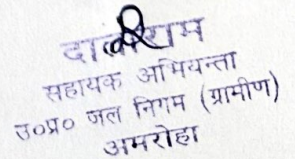 सहायक अभियन्ता
उ०प्र० जल निगम (ग्रामीण)
अमरोहा